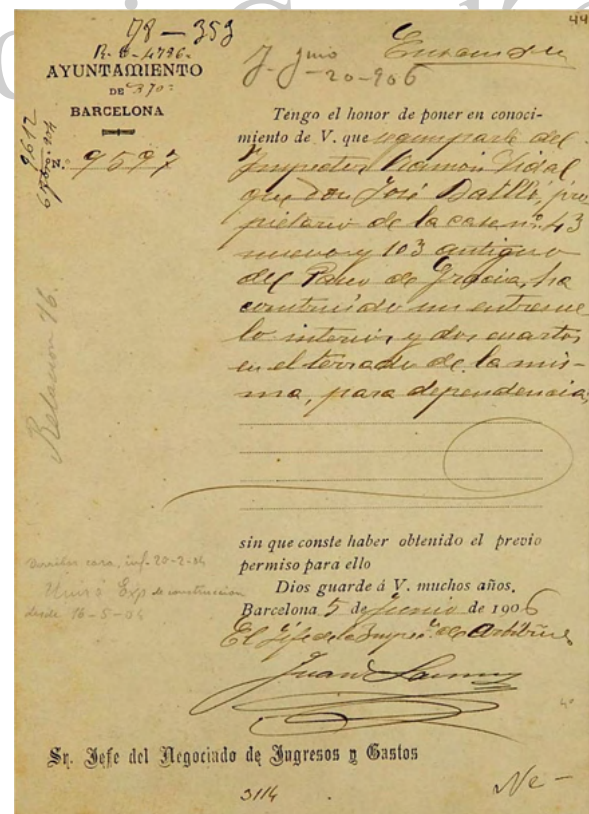 44
78 — 353
R. E - 4786 -
370 =
AYUNTAMIENTO
DE
BARCELONA
N.º 9597
9612
7- Junio
-20-906
Ensanche
Tengo el honor de poner en conoci-
miento de V. que segun parte del
Inspector Ramon Vidal
que Don José Batlló, pro
pietario de la casa nº 43
nuevo y 103 antiguo
del Paseo de Gracia, ha
construido un entresue
lo interior y dos cuartos
en el terrado de la mis-
ma, para dependencias
Relacion 16.
sin que conste haber obtenido el previo
permiso para ello
Dios guarde á V. muchos años.
Barcelona 5 de Junio de 1906
El Jefe de la Inspec.ⁿ de Arbitrios
Juan
Derribar casa, inf. 20-2-04
Unir á Exp de construccion
desde 16-5-04
Sr. Jefe del Negociado de Ingresos y Gastos
3114
Ne -